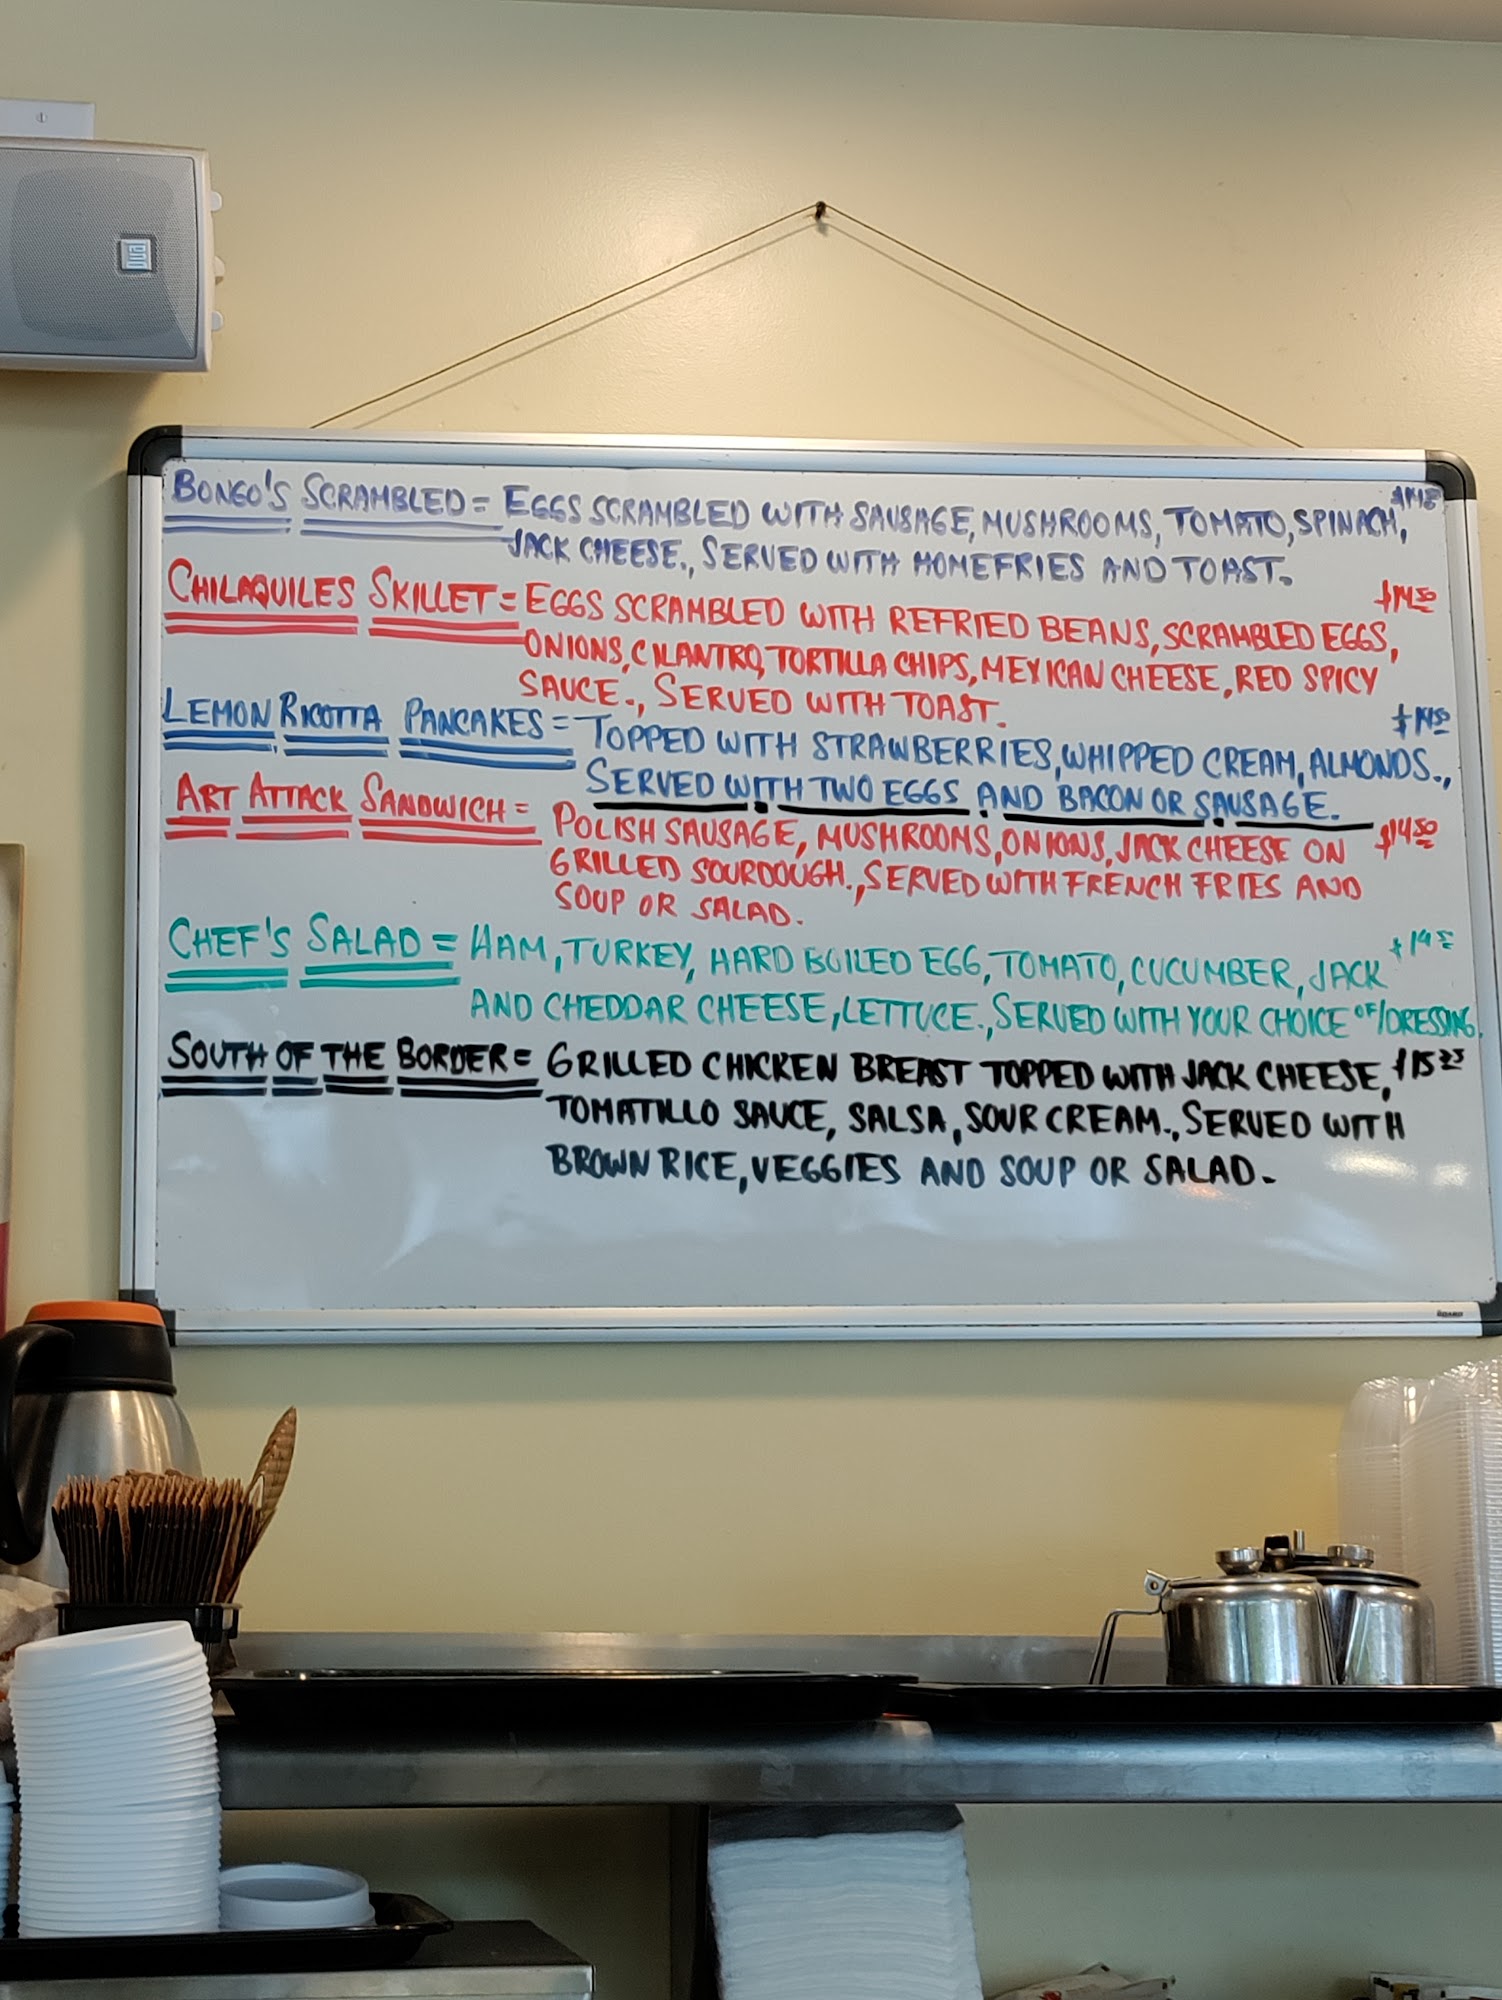 BONGO'S SCRAMBLED = EGGS SCRAMBLED WITH SAUSAGE, MUSHROOMS, TOMATO, SPINACH,
JACK CHEESE., SERVED WITH HOMEFRIES AND TOAST.
CHILAQUILES SKILLET = EGGS SCRAMBLED WITH REFRIED BEANS, SCRAMBLED EGGS, $14.50
ONIONS, CILANTRO, TORTILLA CHIPS, MEXICAN CHEESE, RED SPICY
SAUCE., SERVED WITH TOAST.
LEMON RICOTTA PANCAKES = TOPPED WITH STRAWBERRIES, WHIPPED CREAM, ALMONDS., $14.50
SERVED WITH TWO EGGS AND BACON OR SAUSAGE.
ART ATTACK SANDWICH = POLISH SAUSAGE, MUSHROOMS, ONIONS, JACK CHEESE ON $14.50
GRILLED SOURDOUGH., SERVED WITH FRENCH FRIES AND
SOUP OR SALAD.
CHEF'S SALAD = HAM, TURKEY, HARD BOILED EGG, TOMATO, CUCUMBER, JACK
AND CHEDDAR CHEESE, LETTUCE., SERVED WITH YOUR CHOICE OF/DRESSING.
SOUTH OF THE BORDER = GRILLED CHICKEN BREAST TOPPED WITH JACK CHEESE,
TOMATILLO SAUCE, SALSA, SOUR CREAM., SERVED WITH
BROWN RICE, VEGGIES AND SOUP OR SALAD.